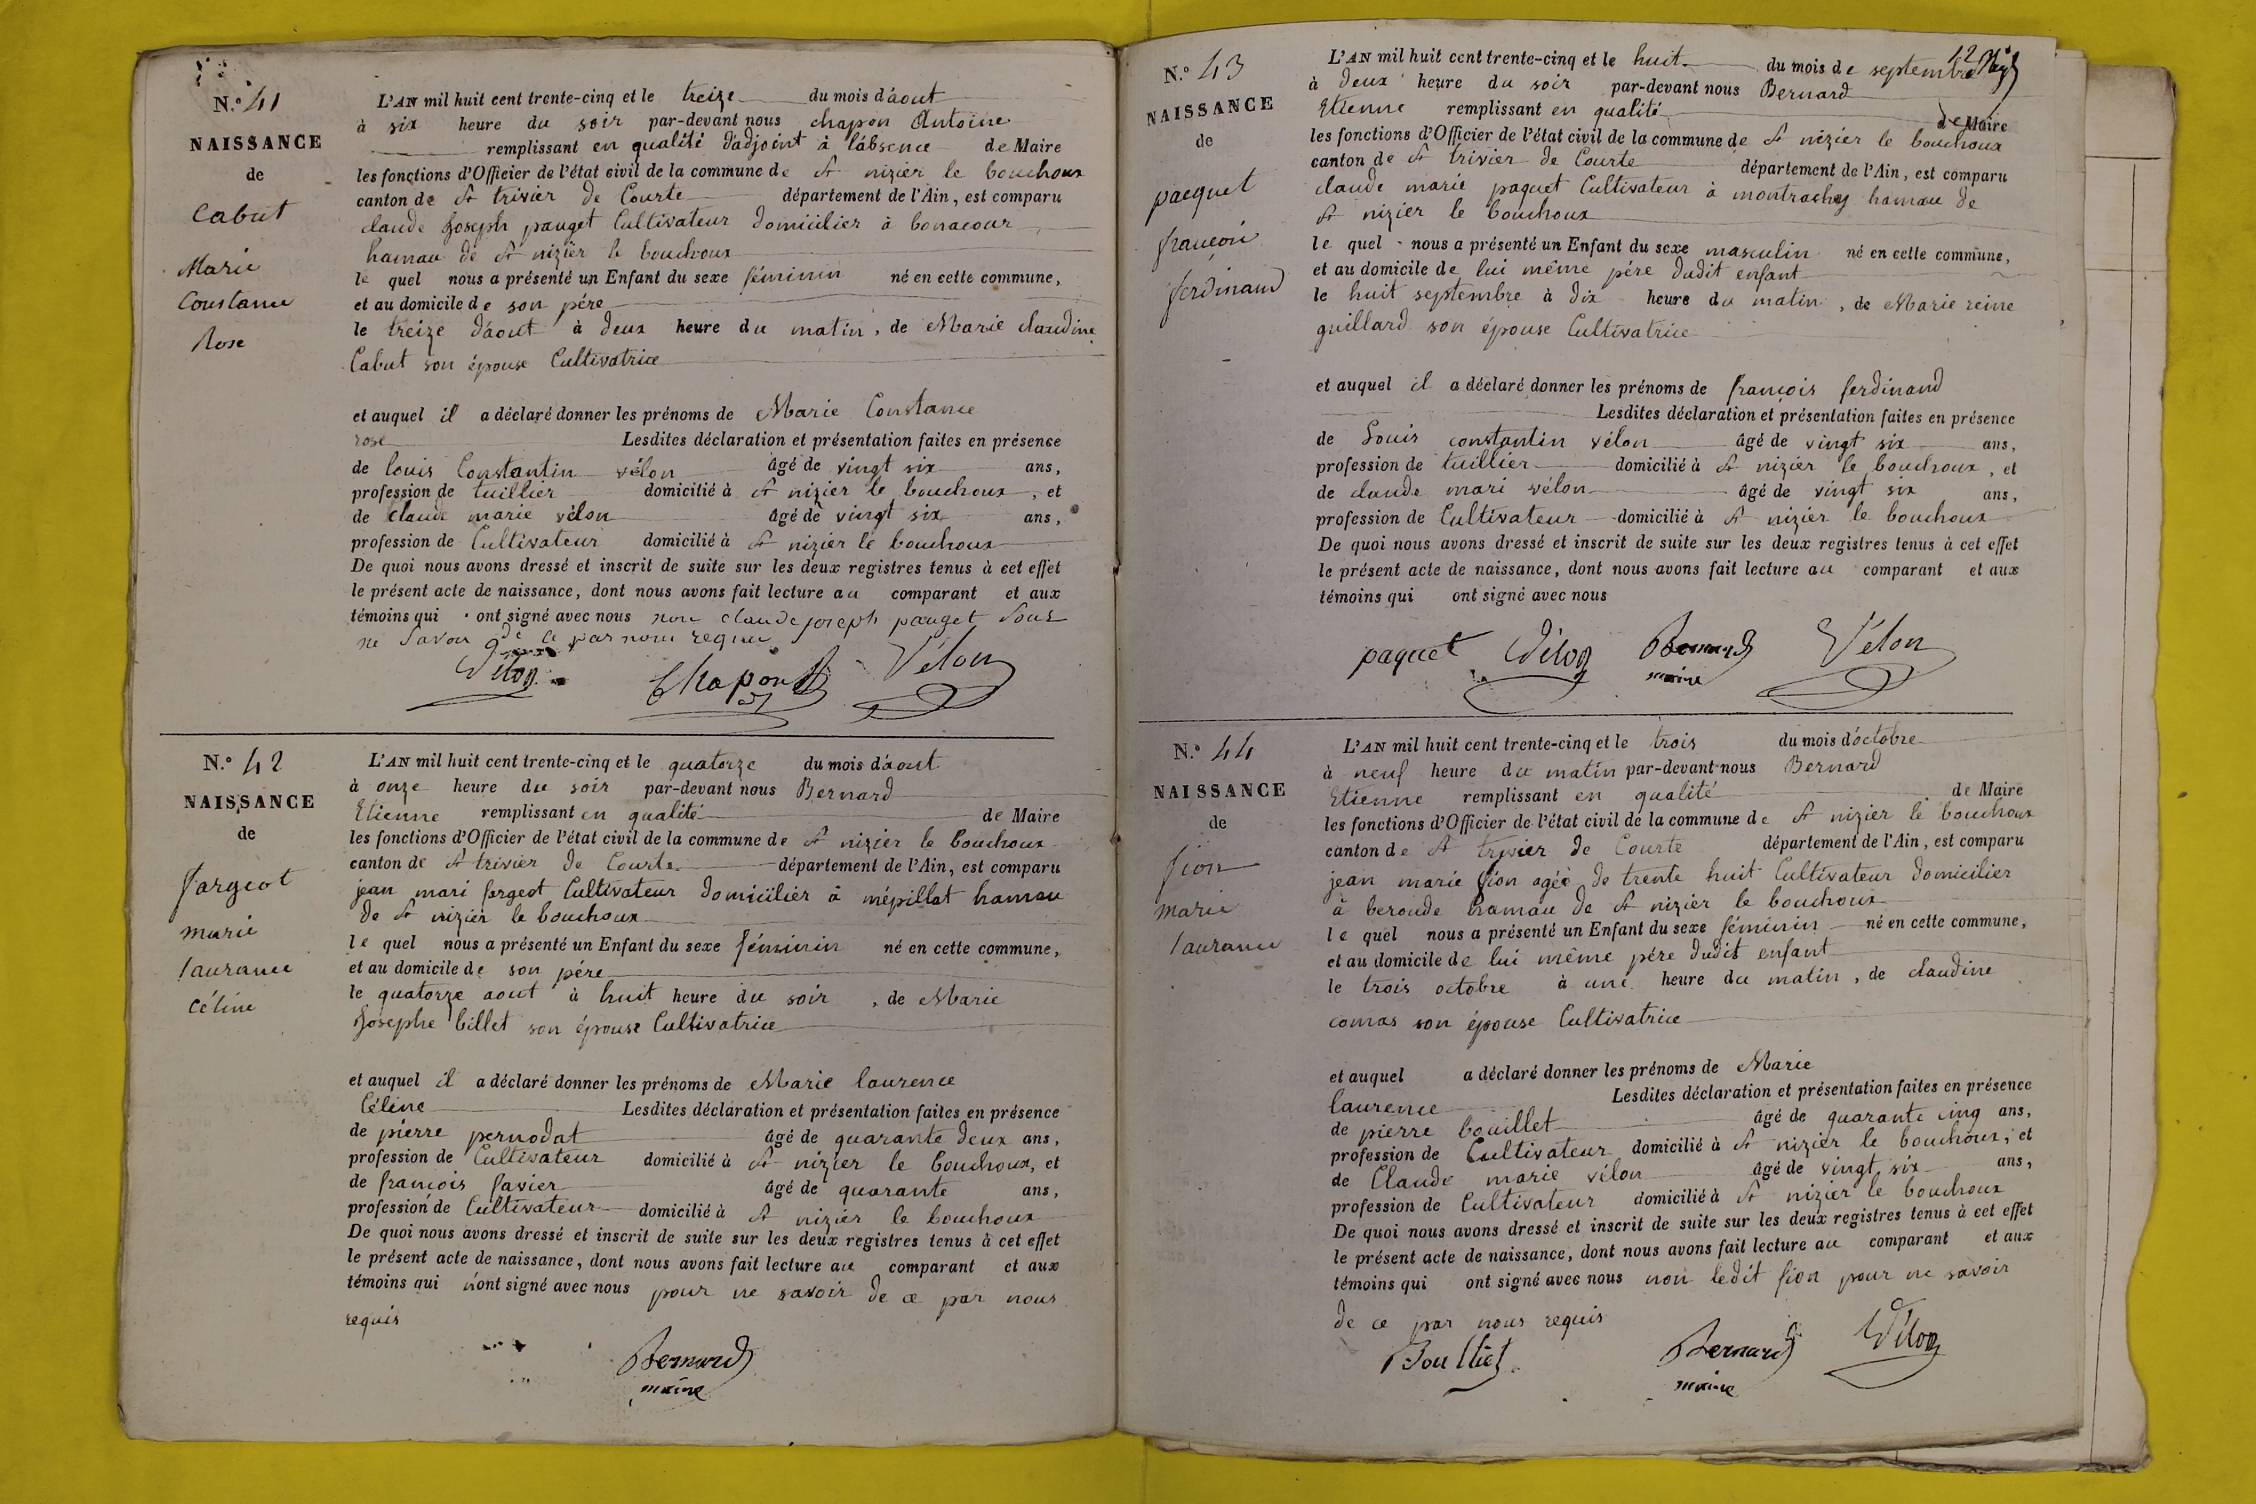 N.º 41
NAISSANCE
de
Cabut
Marie
Constance
Rose
L'AN mil huit cent trente-cinq et le treize du mois d'aout
à six heure du soir par-devant nous chapon Antoine
remplissant en qualité d'adjoint à l'absence de Maire
les fonctions d'Officier de l'état civil de la commune de St nizier le bouchoux
canton de St trivier de Courte département de l'Ain, est comparu
claude Joseph pauget Cultivateur domicilier à bonacour
hamau de St nizier le bouchoux
le quel nous a présenté un Enfant du sexe féminin né en cette commune,
et au domicile de son pére
le treize d'aout à deux heure du matin, de Marie claudine
Cabut son épouse Cultivatrice
et auquel il a déclaré donner les prénoms de Marie Constance
rose Lesdites déclaration et présentation faites en présence
de louis Constantin vélon âgé de vingt six ans,
profession de tuillier domicilié à St nizier le bouchoux, et
de claude marie vélon âgé de vingt six ans,
profession de Cultivateur domicilié à St nizier le bouchoux
De quoi nous avons dressé et inscrit de suite sur les deux registres tenus à cet effet
le présent acte de naissance, dont nous avons fait lecture au comparant et aux
témoins qui ont signé avec nous non claude joseph pauget pour
ne Savoir de ce par nous requis
Vélon Chapon Vélon
N.º 42
NAISSANCE
de
fargeot
marie
laurance
céline
L'AN mil huit cent trente-cinq et le quatorze du mois d'aout
à onze heure du soir par-devant nous Bernard
Etienne remplissant en qualité de Maire
les fonctions d'Officier de l'état civil de la commune de St nizier le bouchoux
canton de St trivier de Courte département de l'Ain, est comparu
jean mari forgeot Cultivateur domicilier à mépillat hamau
de St nizier le bouchoux
le quel nous a présenté un Enfant du sexe féminin né en cette commune,
et au domicile de son pére
le quatorze aout à huit heure du soir, de Marie
Josephe billet son épouse Cultivatrice
et auquel il a déclaré donner les prénoms de Marie laurence
Céline Lesdites déclaration et présentation faites en présence
de piérre pernodat âgé de quarante deux ans,
profession de Cultivateur domicilié à St nizier le bouchoux, et
de francois favier âgé de quarante ans,
profession de Cultivateur domicilié à St nizier le bouchoux
De quoi nous avons dressé et inscrit de suite sur les deux registres tenus à cet effet
le présent acte de naissance, dont nous avons fait lecture au comparant et aux
témoins qui n'ont signé avec nous pour ne savoir de ce par nous
requis
Bernard
maire
12
N.º 43
NAISSANCE
de
pacquet
françois
ferdinand
L'AN mil huit cent trente-cinq et le huit du mois de septembre
à deux heure du soir par-devant nous Bernard
Etienne remplissant en qualité de Maire
les fonctions d'Officier de l'état civil de la commune de St nizier le bouchoux
canton de St trivier de Courte département de l'Ain, est comparu
claude marie paquet Cultivateur à montrachy hamau de
St nizier le bouchoux
le quel nous a présenté un Enfant du sexe masculin né en cette commune,
et au domicile de lui même pére dudit enfant
le huit septembre à dix heure du matin, de Marie reine
guillard son épouse Cultivatrice
et auquel il a déclaré donner les prénoms de françois ferdinand
Lesdites déclaration et présentation faites en présence
de Louis constantin vélon âgé de vingt six ans,
profession de tuillier domicilié à St nizier le bouchoux, et
de claude mari vélon âgé de vingt six ans,
profession de Cultivateur domicilié à St nizier le bouchoux
De quoi nous avons dressé et inscrit de suite sur les deux registres tenus à cet effet
le présent acte de naissance, dont nous avons fait lecture au comparant et aux
témoins qui ont signé avec nous
paquet Vélon Bernard Vélon
maire
N.º 44
NAISSANCE
de
fion
marie
laurance
L'AN mil huit cent trente-cinq et le trois du mois d'octobre
à neuf heure du matin par-devant nous Bernard
Etienne remplissant en qualité de Maire
les fonctions d'Officier de l'état civil de la commune de St nizier le bouchoux
canton de St trivier de Courte département de l'Ain, est comparu
jean marie fion agéé de trente huit Cultivateur domicilier
à beroude hamau de St nizier le bouchoux
le quel nous a présenté un Enfant du sexe féminin né en cette commune,
et au domicile de lui même pére dudit enfant
le trois octobre à une heure du matin, de claudine
comas son épouse Cultivatrice
et auquel a déclaré donner les prénoms de Marie
laurence Lesdites déclaration et présentation faites en présence
de piérre bouillet âgé de quarante cinq ans,
profession de Cultivateur domicilié à St nizier le bouchoux, et
de Claude marie vélon âgé de vingt six ans,
profession de Cultivateur domicilié à St nizier le bouchoux
De quoi nous avons dressé et inscrit de suite sur les deux registres tenus à cet effet
le présent acte de naissance, dont nous avons fait lecture au comparant et aux
témoins qui ont signé avec nous non ledit fion pour ne savoir
de ce par nous requis
Boulliet Bernard Vélon
maire